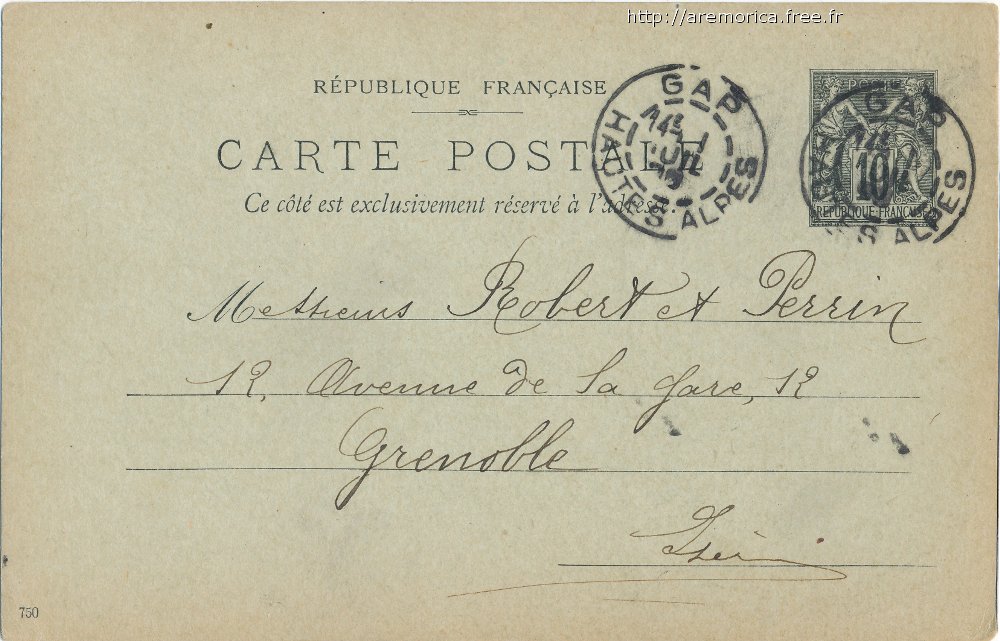 http://aremorica.free.fr
RÉPUBLIQUE FRANÇAISE
CARTE POSTALE
Ce côté est exclusivement réservé à l'adresse.
GAP
JUIL
HAUTES ALPES
GAP
10
REPUBLIQUE FRANÇAISE
ALPES
Messieurs Robert et Perrin
12, Avenue de la Gare, 12
Grenoble
Isère
750